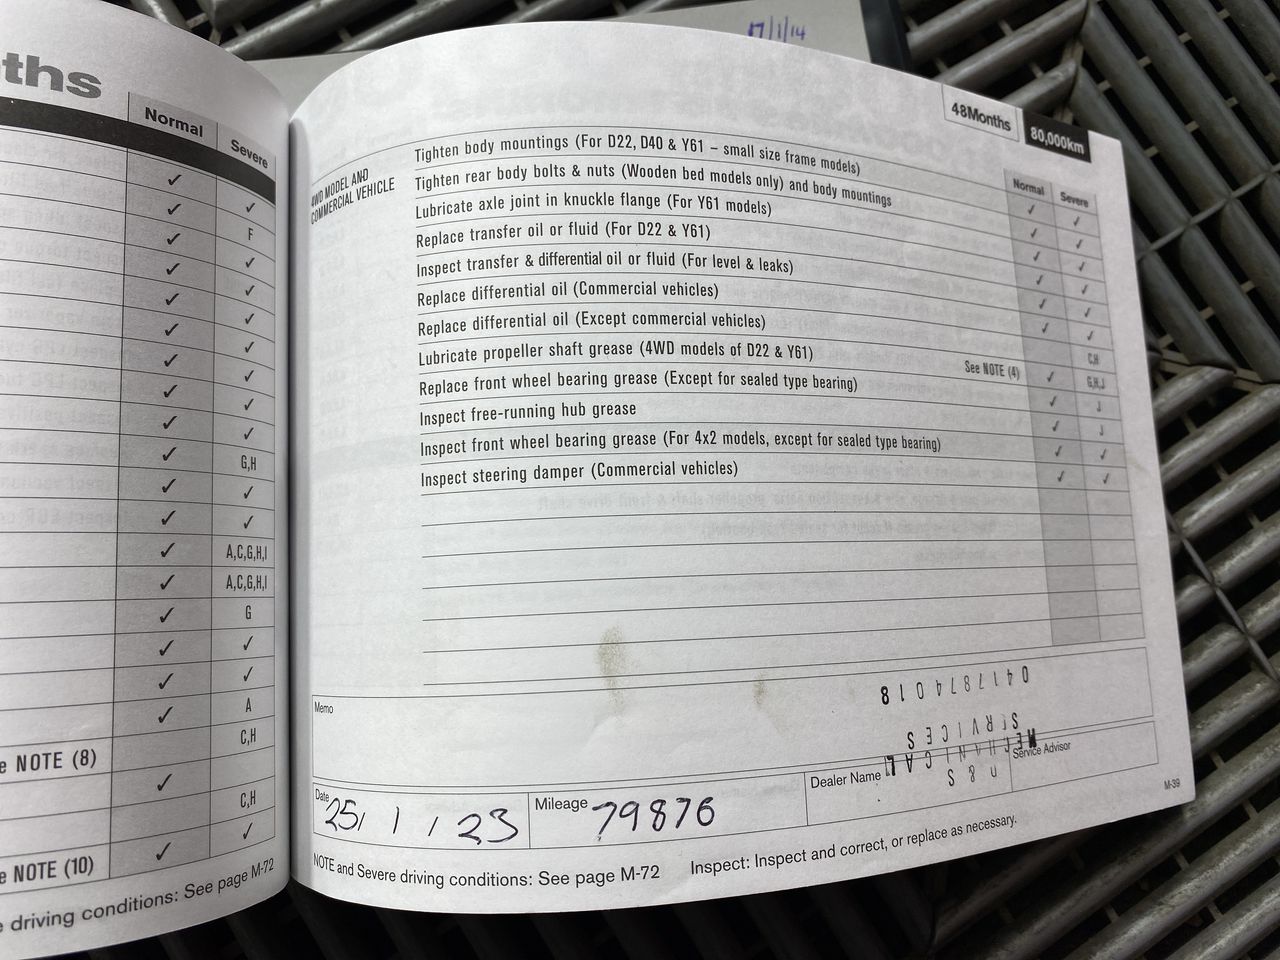 17/1/14
ths
Normal
Severe
✓
✓ ✓
✓ F
✓ ✓
✓ ✓
✓ ✓
✓ ✓
✓ ✓
✓ ✓
✓ ✓
✓ G,H
✓ ✓
✓ ✓
✓ A,C,G,H,I
✓ A,C,G,H,I
✓ G
✓ ✓
✓ ✓
A
e NOTE (8) C,H
✓
C,H
e NOTE (10) ✓ ✓
driving conditions: See page M-72
48Months 80,000km
Normal Severe
4WD MODEL AND
COMMERCIAL VEHICLE
Tighten body mountings (For D22, D40 & Y61 – small size frame models) ✓ ✓
Tighten rear body bolts & nuts (Wooden bed models only) and body mountings ✓ ✓
Lubricate axle joint in knuckle flange (For Y61 models) ✓ ✓
Replace transfer oil or fluid (For D22 & Y61) ✓ ✓
Inspect transfer & differential oil or fluid (For level & leaks) ✓ ✓
Replace differential oil (Commercial vehicles) ✓ C,H
Replace differential oil (Except commercial vehicles) See NOTE (4) G,H,J
Lubricate propeller shaft grease (4WD models of D22 & Y61) ✓ J
Replace front wheel bearing grease (Except for sealed type bearing) ✓ J
Inspect free-running hub grease ✓ ✓
Inspect front wheel bearing grease (For 4x2 models, except for sealed type bearing) ✓ ✓
Inspect steering damper (Commercial vehicles) ✓ ✓
Memo
0417874018
SERVICES
MECHANICAL
Date 25/1/23
Mileage 79876
Dealer Name
Service Advisor
M-39
NOTE and Severe driving conditions: See page M-72 Inspect: Inspect and correct, or replace as necessary.